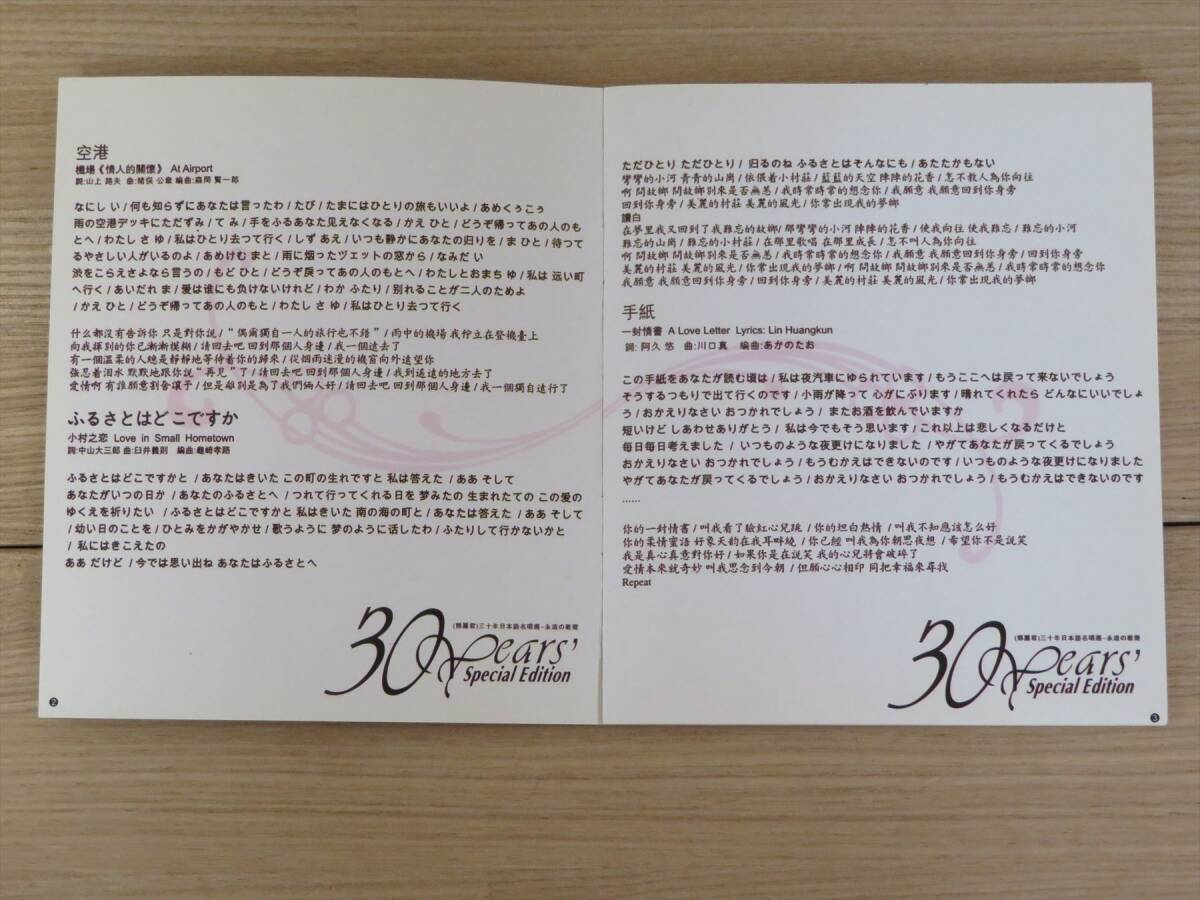 空港
機場《情人的關懷》 At Airport
詞:山上 路夫 曲:猪俣 公章 編曲:森岡 賢一郎
なにし い / 何も知らずにあなたは言ったわ / たび / たまにはひとりの旅もいいよ / あめくぅこぅ
雨の空港デッキにただずみ / て み / 手をふるあなた見えなくなる / かえ ひと / どうぞ帰ってあの人のも
とへ / わたし さ ゆ / 私はひとり去つて行く / しず あえ / いつも静かにあなたの归りを / ま ひと / 待つて
るやさしい人がいるのよ / あめけむ まと / 雨に烟ったヅェットの窓から / なみだ い
渋をこらえさよなら言うの / もど ひと / どうぞ戻ってあの人のもとへ / わたしとおまち ゆ / 私は 远い町
へ行く / あいだれ ま / 爱は谁にも负けないけれど / わか ふたり / 别れることが二人のためよ
/ かえ ひと / どうぞ帰ってあの人のもと / わたし さ ゆ / 私はひとり去つて行く
什么都沒有告訴你 只是對你說 / “ 偶爾獨自一人的旅行也不錯 ” / 雨中的機場 我伫立在登機臺上
向我揮別的你已漸漸模糊 / 請回去吧 回到那個人身邊 / 我一個遠去了
有一個溫柔的人總是靜靜地等待着你的歸來 / 從烟雨迷漫的機窗向外遠望你
強忍着泪水 默默地跟你說 “ 再見 ” 了 / 請回去吧 回到那個人身邊 / 我到遥遠的地方去了
愛情啊 有誰願意割舍讓予 / 但是離別是為了我們倆人好 / 請回去吧 回到那個人身邊 / 我一個獨自遠行了
ふるさとはどこですか
小村之恋 Love in Small Hometown
詞:中山大三郎 曲:臼井義則 編曲:龜崎孝路
ふるさとはどこですかと / あなたはきいた この町の生れですと 私は答えた / ああ そして
あなたがいつの日か / あなたのふるさとへ / つれて行ってくれる日を 梦みたの 生まれたての この爱の
ゆくえを祈りたい / ふるさとはどこですかと 私はきいた 南の海の町と / あなたは答えた / ああ そして
/ 幼い日のことを / ひとみをかがやかせ / 歌うように 梦のように话したわ / ふたりして行かないかと
/ 私にはきこえたの
ああ だけど / 今では思い出ね あなたはふるさとへ
(鄧麗君)三十年日本語名唱選-永遠の歌聲
30 Years'
Special Edition
2
ただひとり ただひとり / 归るのね ふるさとはそんなにも / あたたかもない
彎彎的小河 青青的山崗 / 依偎着小村莊 / 藍藍的天空 陣陣的花香 / 怎不教人為你向往
啊 問故鄉 問故鄉別來是否無恙 / 我時常時常的想念你 / 我願意 我願意回到你身旁
回到你身旁 / 美麗的村莊 美麗的風光 / 你常出現我的夢鄉
讀白
在夢里我又回到了我難忘的故鄉 / 那彎彎的小河 陣陣的花香 / 使我向往 使我難忘 / 難忘的小河
難忘的山崗 / 難忘的小村莊 / 在那里歌唱 在那里成長 / 怎不叫人為你向往
啊 問故鄉 問故鄉別來是否無恙 / 我時常時常的想念你 / 我願意 我願意回到你身旁 / 回到你身旁
美麗的村莊 美麗的風光 / 你常出現我的夢鄉 / 啊 問故鄉 問故鄉別來是否無恙 / 我時常時常的想念你
我願意 我願意回到你身旁 / 回到你身旁 / 美麗的村莊 美麗的風光 / 你常出現我的夢鄉
手紙
一封情書 A Love Letter Lyrics: Lin Huangkun
詞: 阿久 悠 曲:川口真 編曲:あかのたお
この手紙をあなたが読む頃は / 私は夜汽車にゆられています / もうここへは戻って来ないでしょう
そうするつもりで出て行くのです / 小雨が降って 心がにぶります / 晴れてくれたら どんなにいいでしょ
う / おかえりなさい おつかれでしょう / またお酒を飲んでいますか
短いけど しあわせありがとう / 私は今でもそう思います / これ以上は悲しくなるだけと
毎日毎日考えました / いつものような夜更けになりました / やがてあなたが戻ってくるでしょう
おかえりなさい おつかれでしょう / もうむかえはできないのです / いつものような夜更けになりました
やがてあなたが戻ってくるでしょう / おかえりなさい おつかれでしょう / もうむかえはできないのです
……
你的一封情書 / 叫我看了臉紅心兒跳 / 你的坦白熱情 / 叫我不知應該怎么好
你的柔情蜜語 好象天韵在我耳畔繞 / 你已經 叫我為你朝思夜想 / 希望你不是說笑
我是真心真意對你好 / 如果你是在說笑 我的心兒將會破碎了
愛情本來就奇妙 叫我思念到今朝 / 但願心心相印 同把幸福來尋找
Repeat
(鄧麗君)三十年日本語名唱選-永遠の歌聲
30 Years'
Special Edition
3